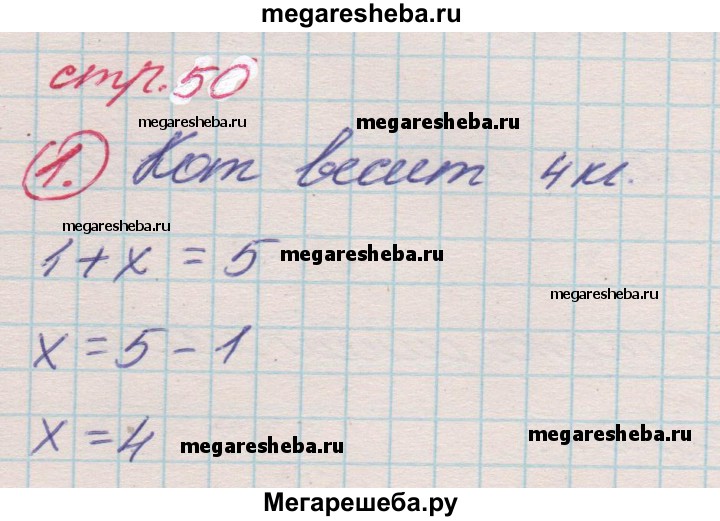 megaresheba.ru
стр. 50
megaresheba.ru megaresheba.ru
1. Кот весит 4 кг.
megaresheba.ru
1 + x = 5 megaresheba.ru
megaresheba.ru
x = 5 - 1
x = 4 megaresheba.ru megaresheba.ru
Мегарешеба.ру